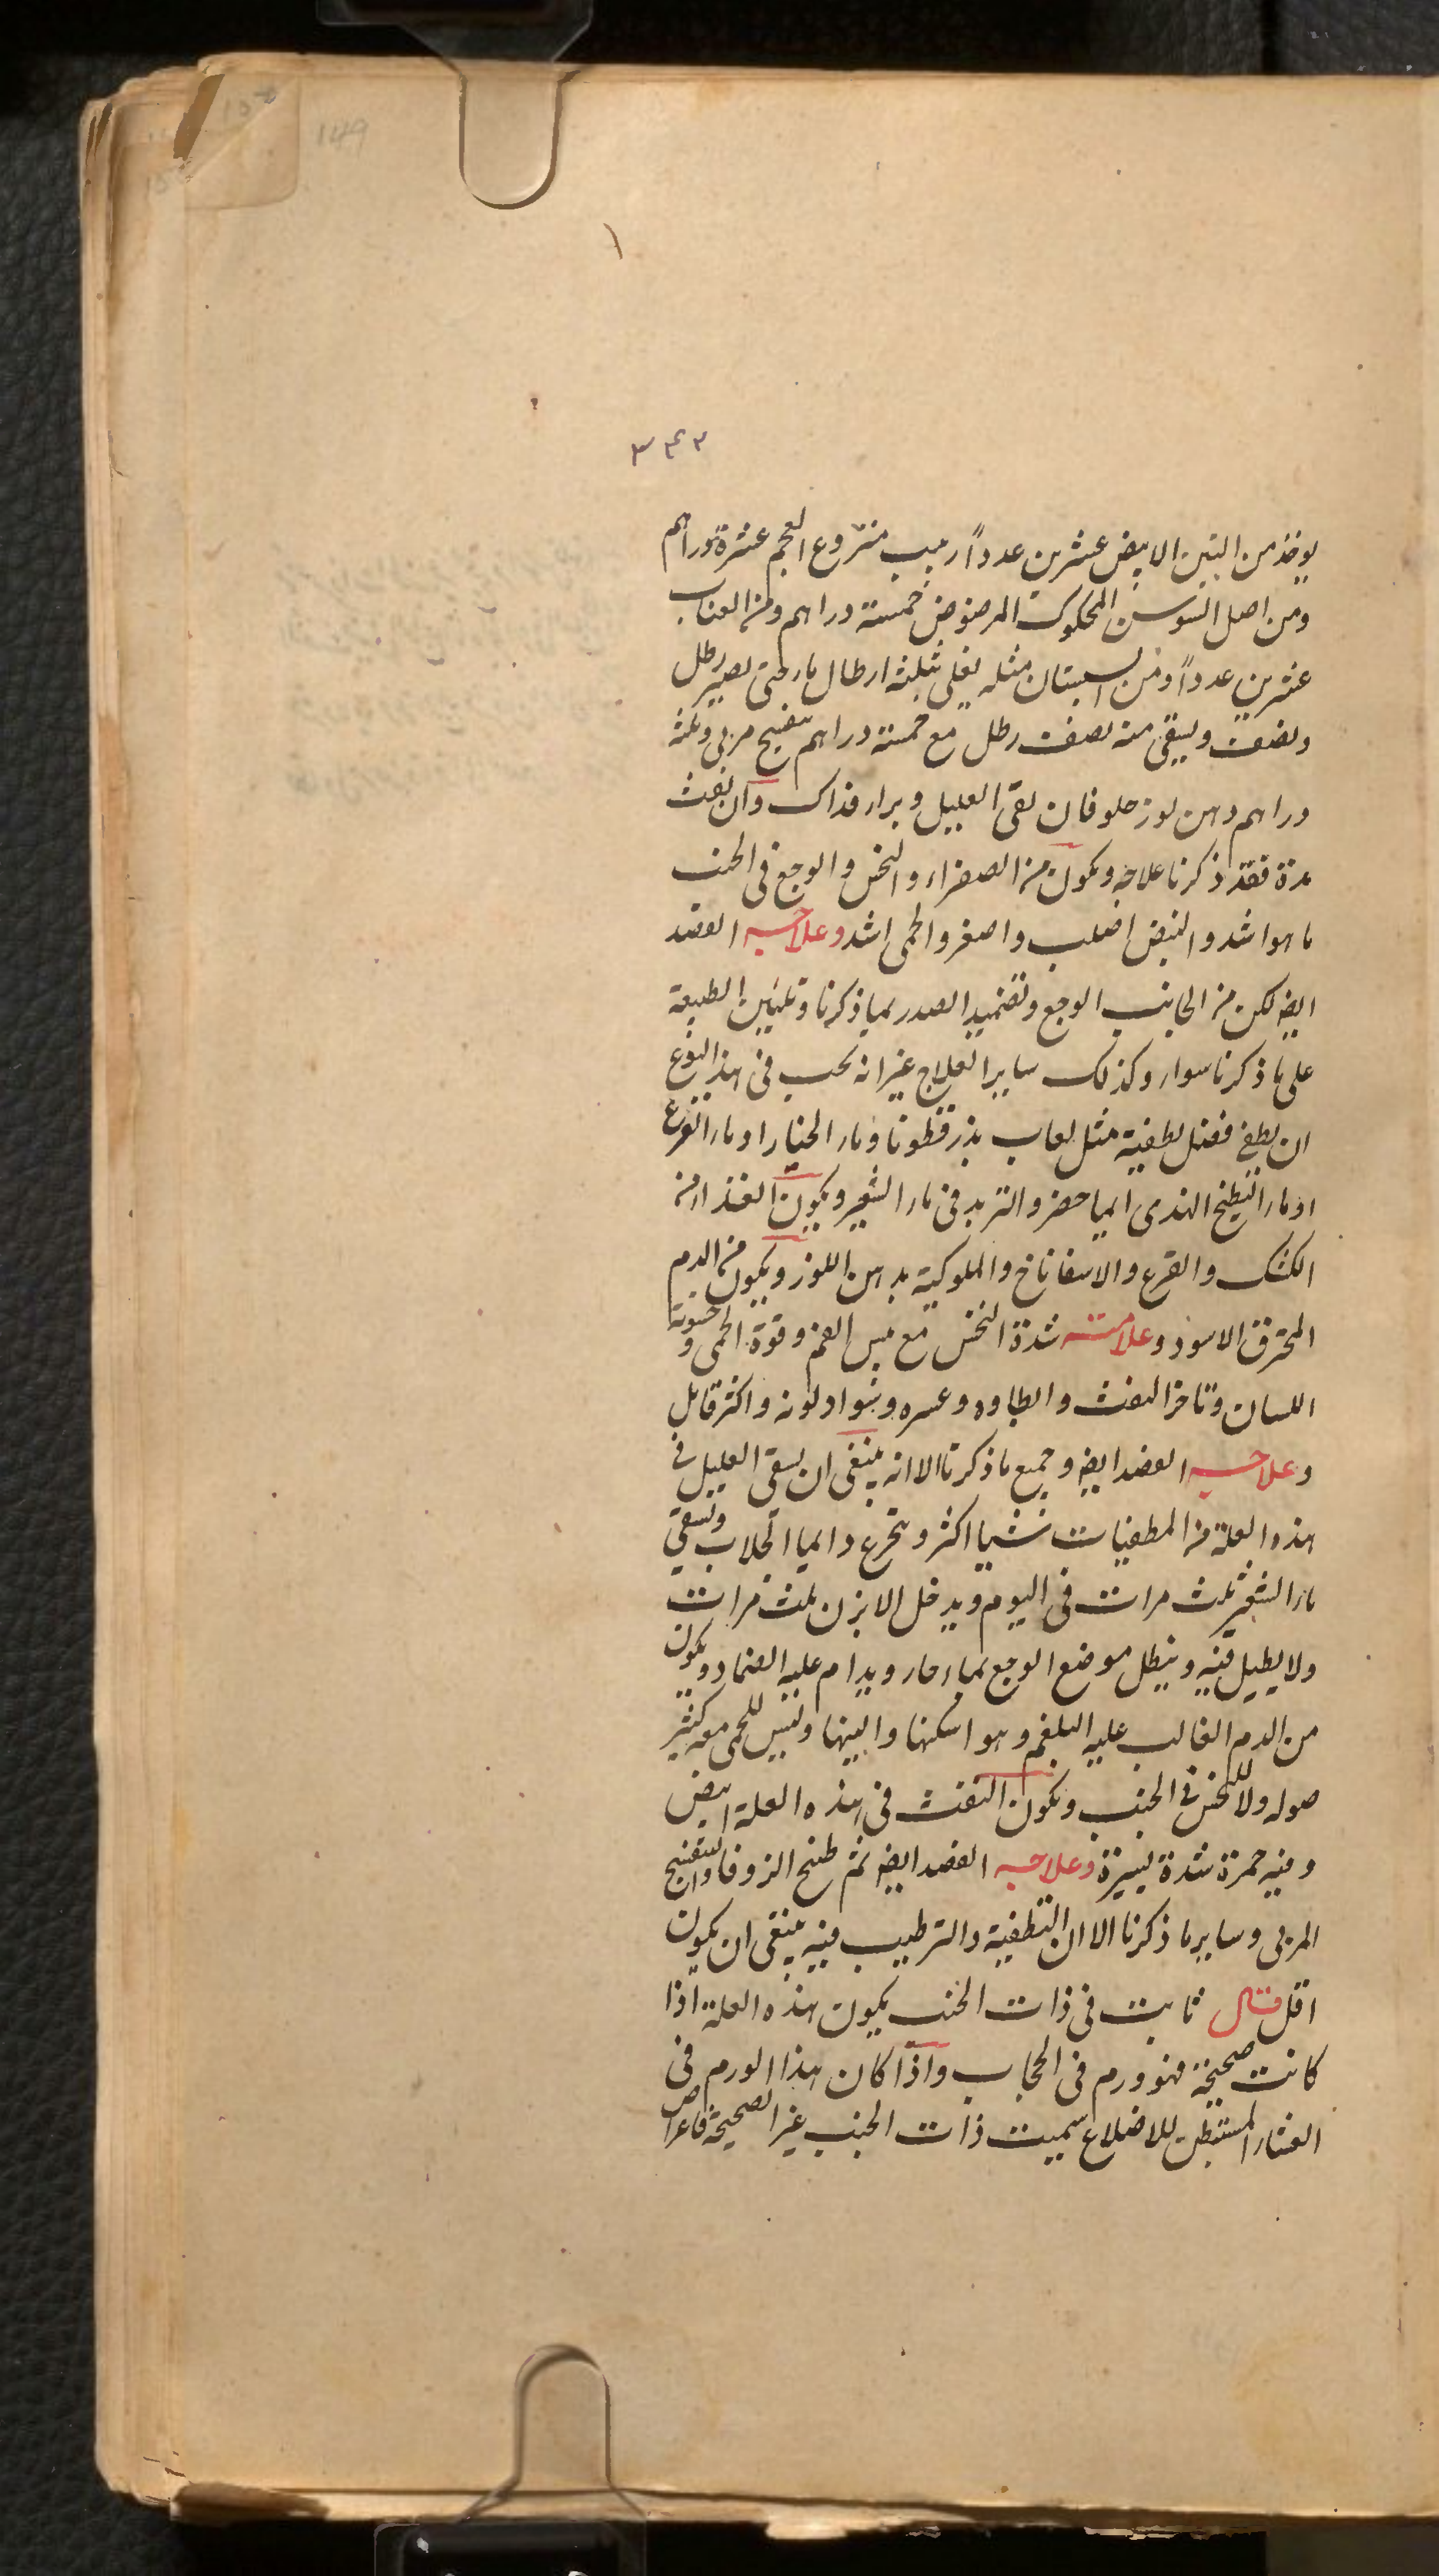 149
۳۴۳
يوخذ من التين الابيض عشرين عدداً زبيب منزوع العجم عشرة دراهم
ومن اصل السوسن المحكوك المرضوض خمسة دراهم ومن العناب
عشرين عدداً ومن السبستان مثله يغلى بثلثة ارطال ماء حتى يصير رطل
ونصف ويسقى منه نصف رطل مع خمسة دراهم بنفسج مربى وثلثة
دراهم دهن لوز حلو فان نقى العليل وبراء فذاك وان نفث
مدة فقد ذكرنا علاجه ويكون من الصفراء والنخس والوجع فى الجنب
ما هو اشد والنبض اصلب واصغر والحمى اشد وعلاجه الفصد
ايضا لكن من الجانب الوجع وتضميد الصدر بما ذكرنا وتليين الطبيعة
على ما ذكرنا سواء وكذلك ساير العلاج غير انه يجب فى هذا النوع
ان يطفى فضل تطفية مثل لعاب بذرقطونا وماء الخيار او ماء القرع
او ماء البطيخ الهندى ايما حضر والتربد فى ماء الشعير ويكون الغذاء من
الكشك والقرع والاسفاناخ والملوكية بدهن اللوز ويكون من الدم
المحترق الاسود وعلامته شدة النخس مع يبس الفم وقوة الحمى وخشونة
اللسان وتاخر النفث وابطاوه وعسره وسواد لونه واكثر قاتل
وعلاجه الفصد ايضا وجميع ما ذكرنا الا انه ينبغى ان يسقى العليل فى
هذه العلة من المطفيات شيا اكثر ويتجرع دايما الجلاب ويسقى
ماء الشعير ثلث مرات فى اليوم ويدخل الابزن ثلث مرات
ولا يطيل فيه وينطل موضع الوجع بماء حار ويدام عليه الضماد ويكون
من الدم الغالب عليه البلغم وهو اسكنها والينها وليس للحمى معه كثير
صوله ولا للنخس فى الجنب ويكون النفث فى هذه العلة ابيض
وفيه حمرة شدة يسيرة وعلاجه الفصد ايضا ثم طبخ الزوفا والبنفسج
المربى وساير ما ذكرنا الا ان التطفية والترطيب فيه ينبغى ان يكون
اقل قال ثابت فى ذات الجنب يكون هذه العلة اذا
كانت صحيحة فهو ورم فى الحجاب واذا كان هذا الورم فى
الغشاء المستبطن للاضلاع سميت ذات الجنب غير الصحيحة فاعراض